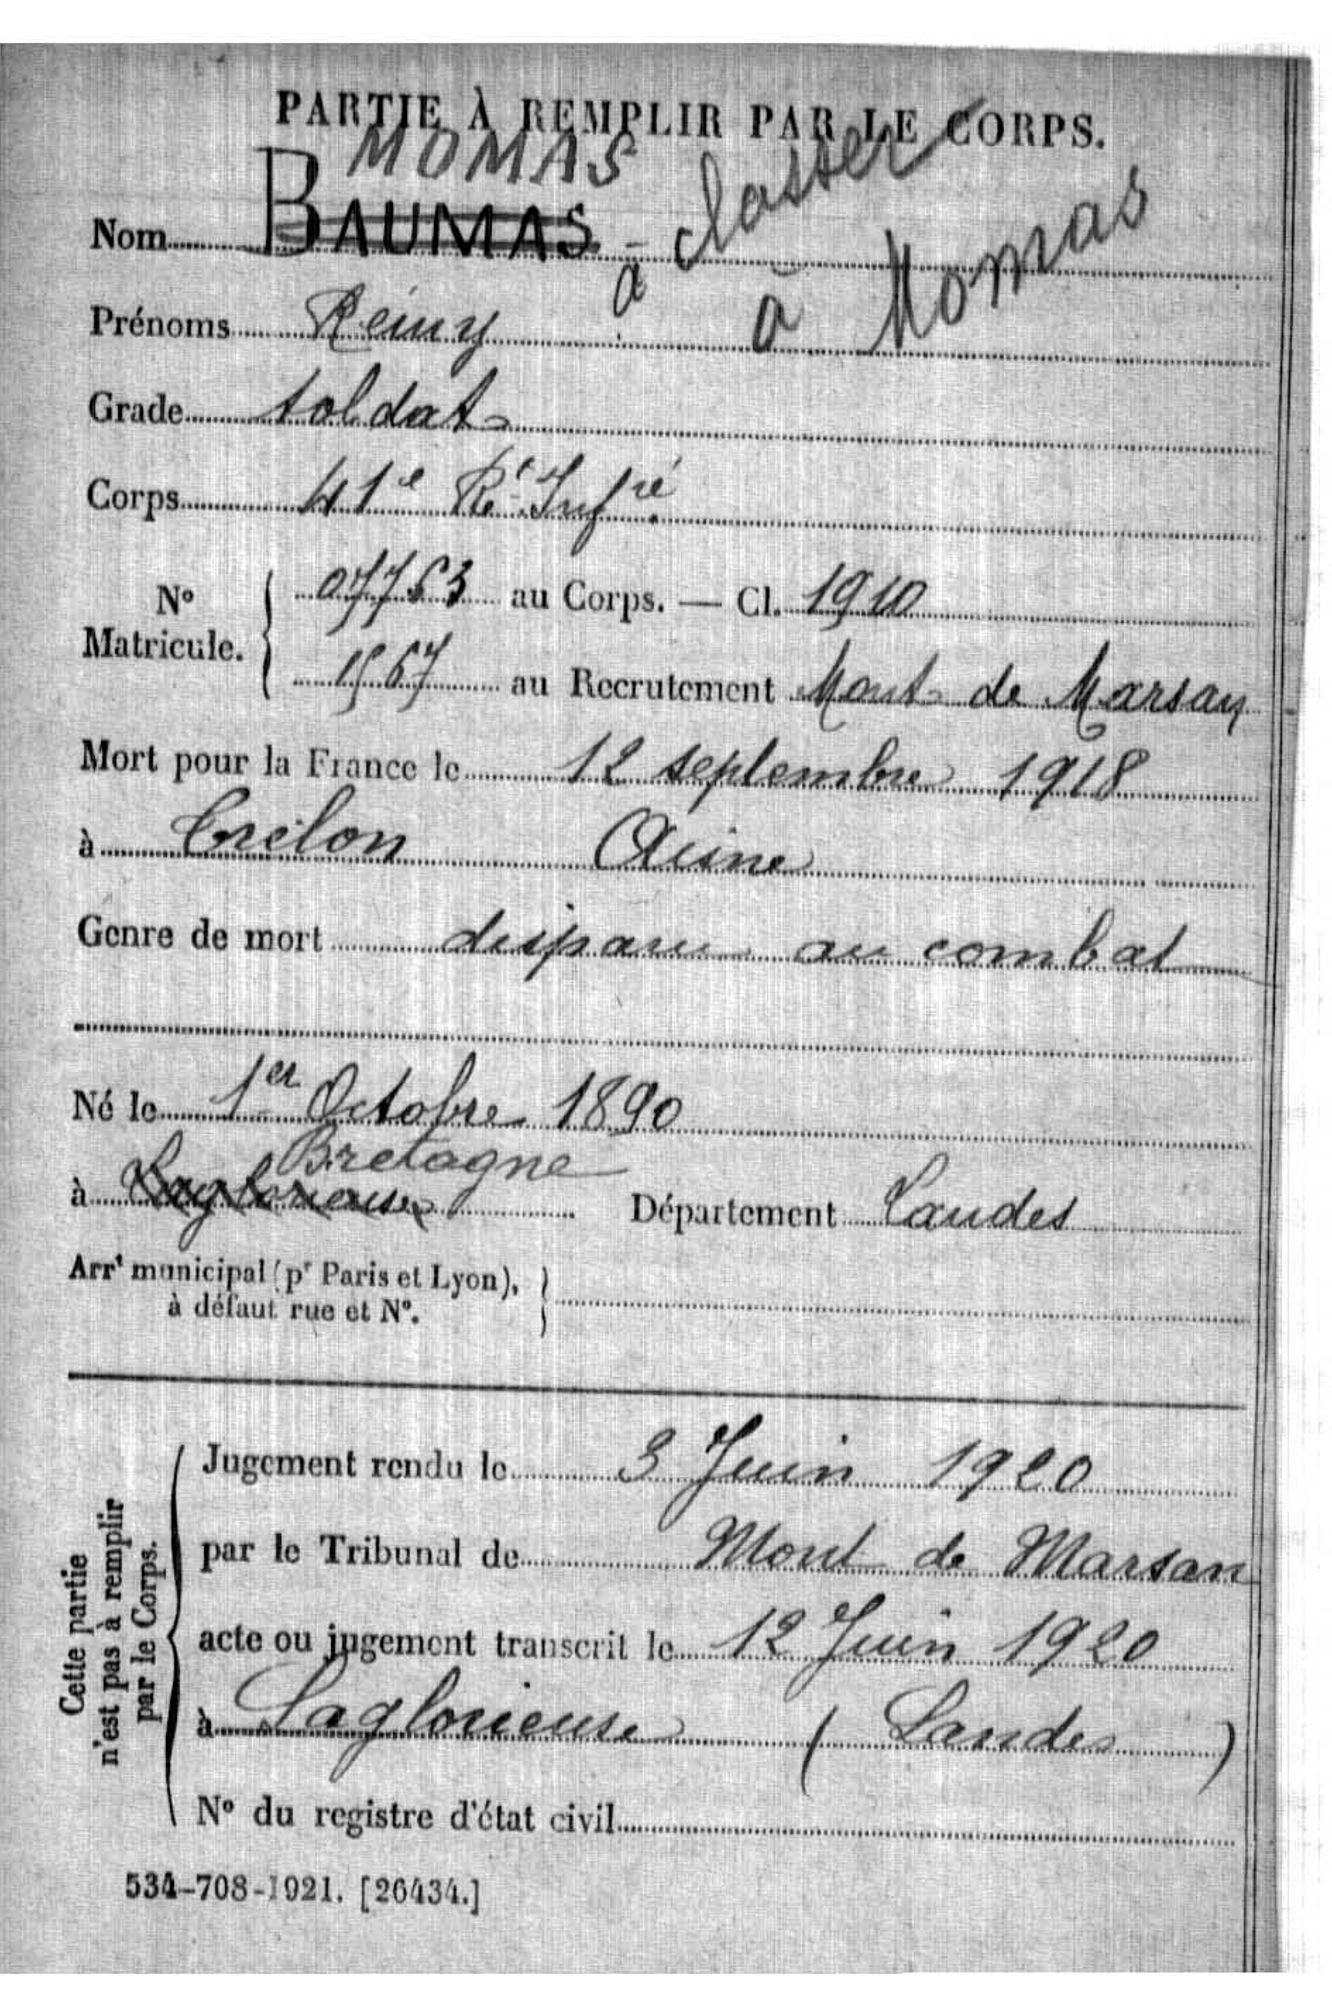 PARTIE À REMPLIR PAR LE CORPS.
MOMAS
Nom BAUMAS - à classer
à Momas
Prénoms Rémy
Grade soldat
Corps 41e Rt Infrie
No Matricule. 07763 au Corps. — Cl. 1910
1567 au Recrutement Mont de Marsan
Mort pour la France le 12 septembre 1918
à Crélon Aisne
Genre de mort disparu au combat
Né le 1er Octobre 1890
Bretagne
à Laglorieuse Département Landes
Arrt municipal (pr Paris et Lyon),
à défaut rue et No.
Jugement rendu le 3 Juin 1920
par le Tribunal de Mont de Marsan
acte ou jugement transcrit le 12 Juin 1920
à Laglorieuse (Landes)
No du registre d'état civil
Cette partie
n'est pas à remplir
par le Corps.
534-708-1921. [26434.]